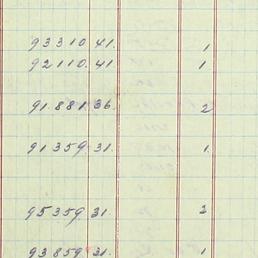 93310.41. 1
92110.41 1
91.881.36. 2
91359.31. 1.
95359.31. 2
93859.31. 1